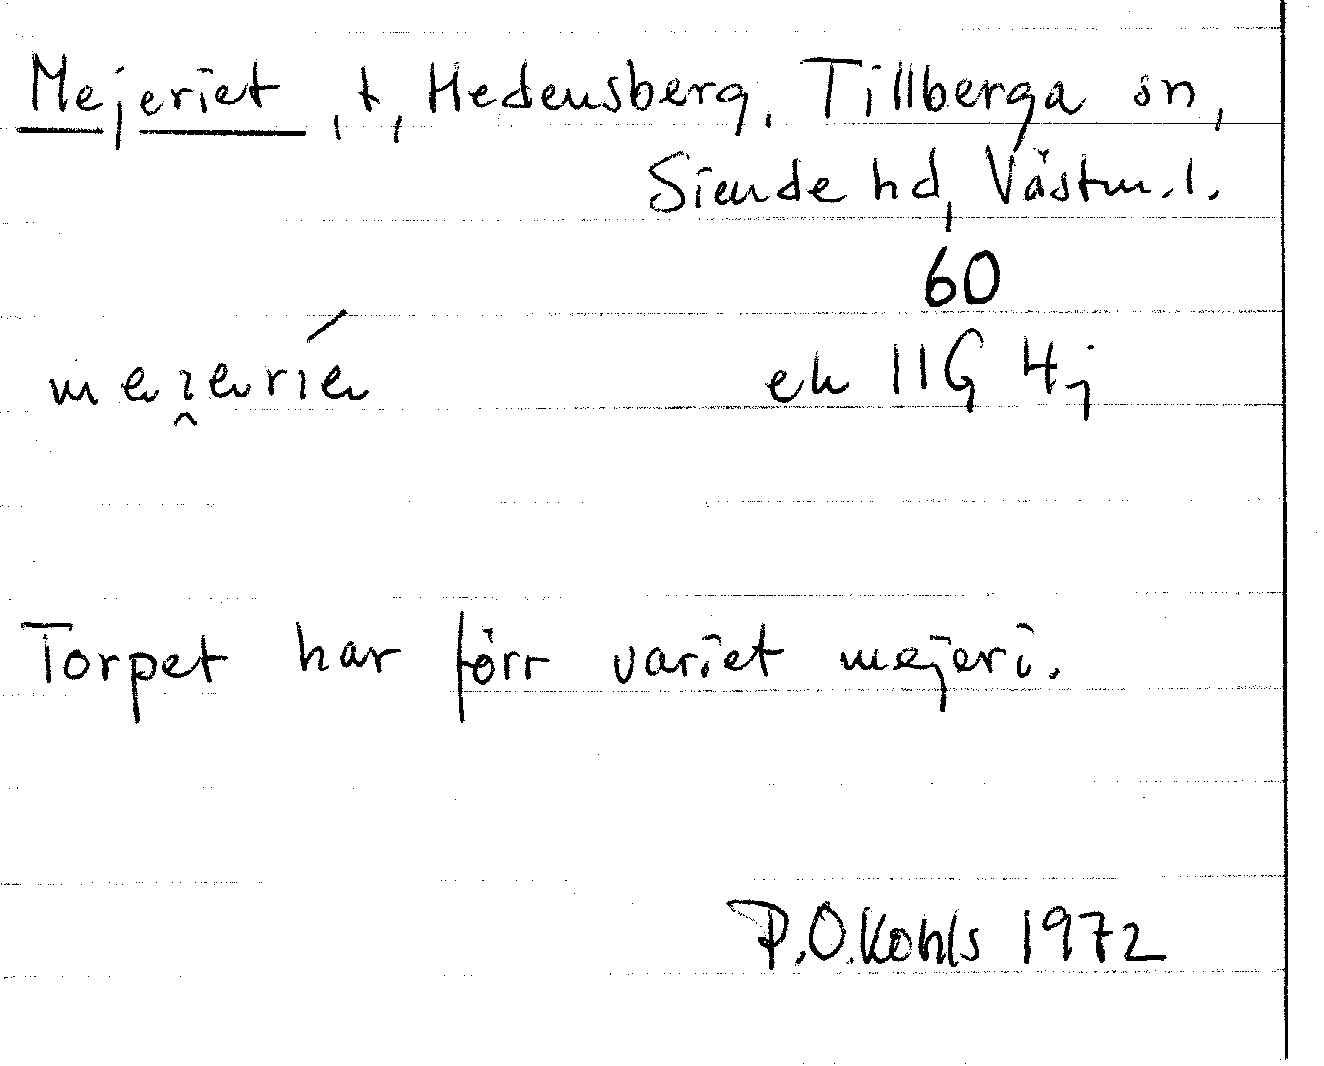 Mejeriet, t, Hedensberg, Tillberga sn,
Siende hd, Västm. l.
60
ek 11G 4j
Torpet har förr variet mejeri.
P.O.Kohls 1972